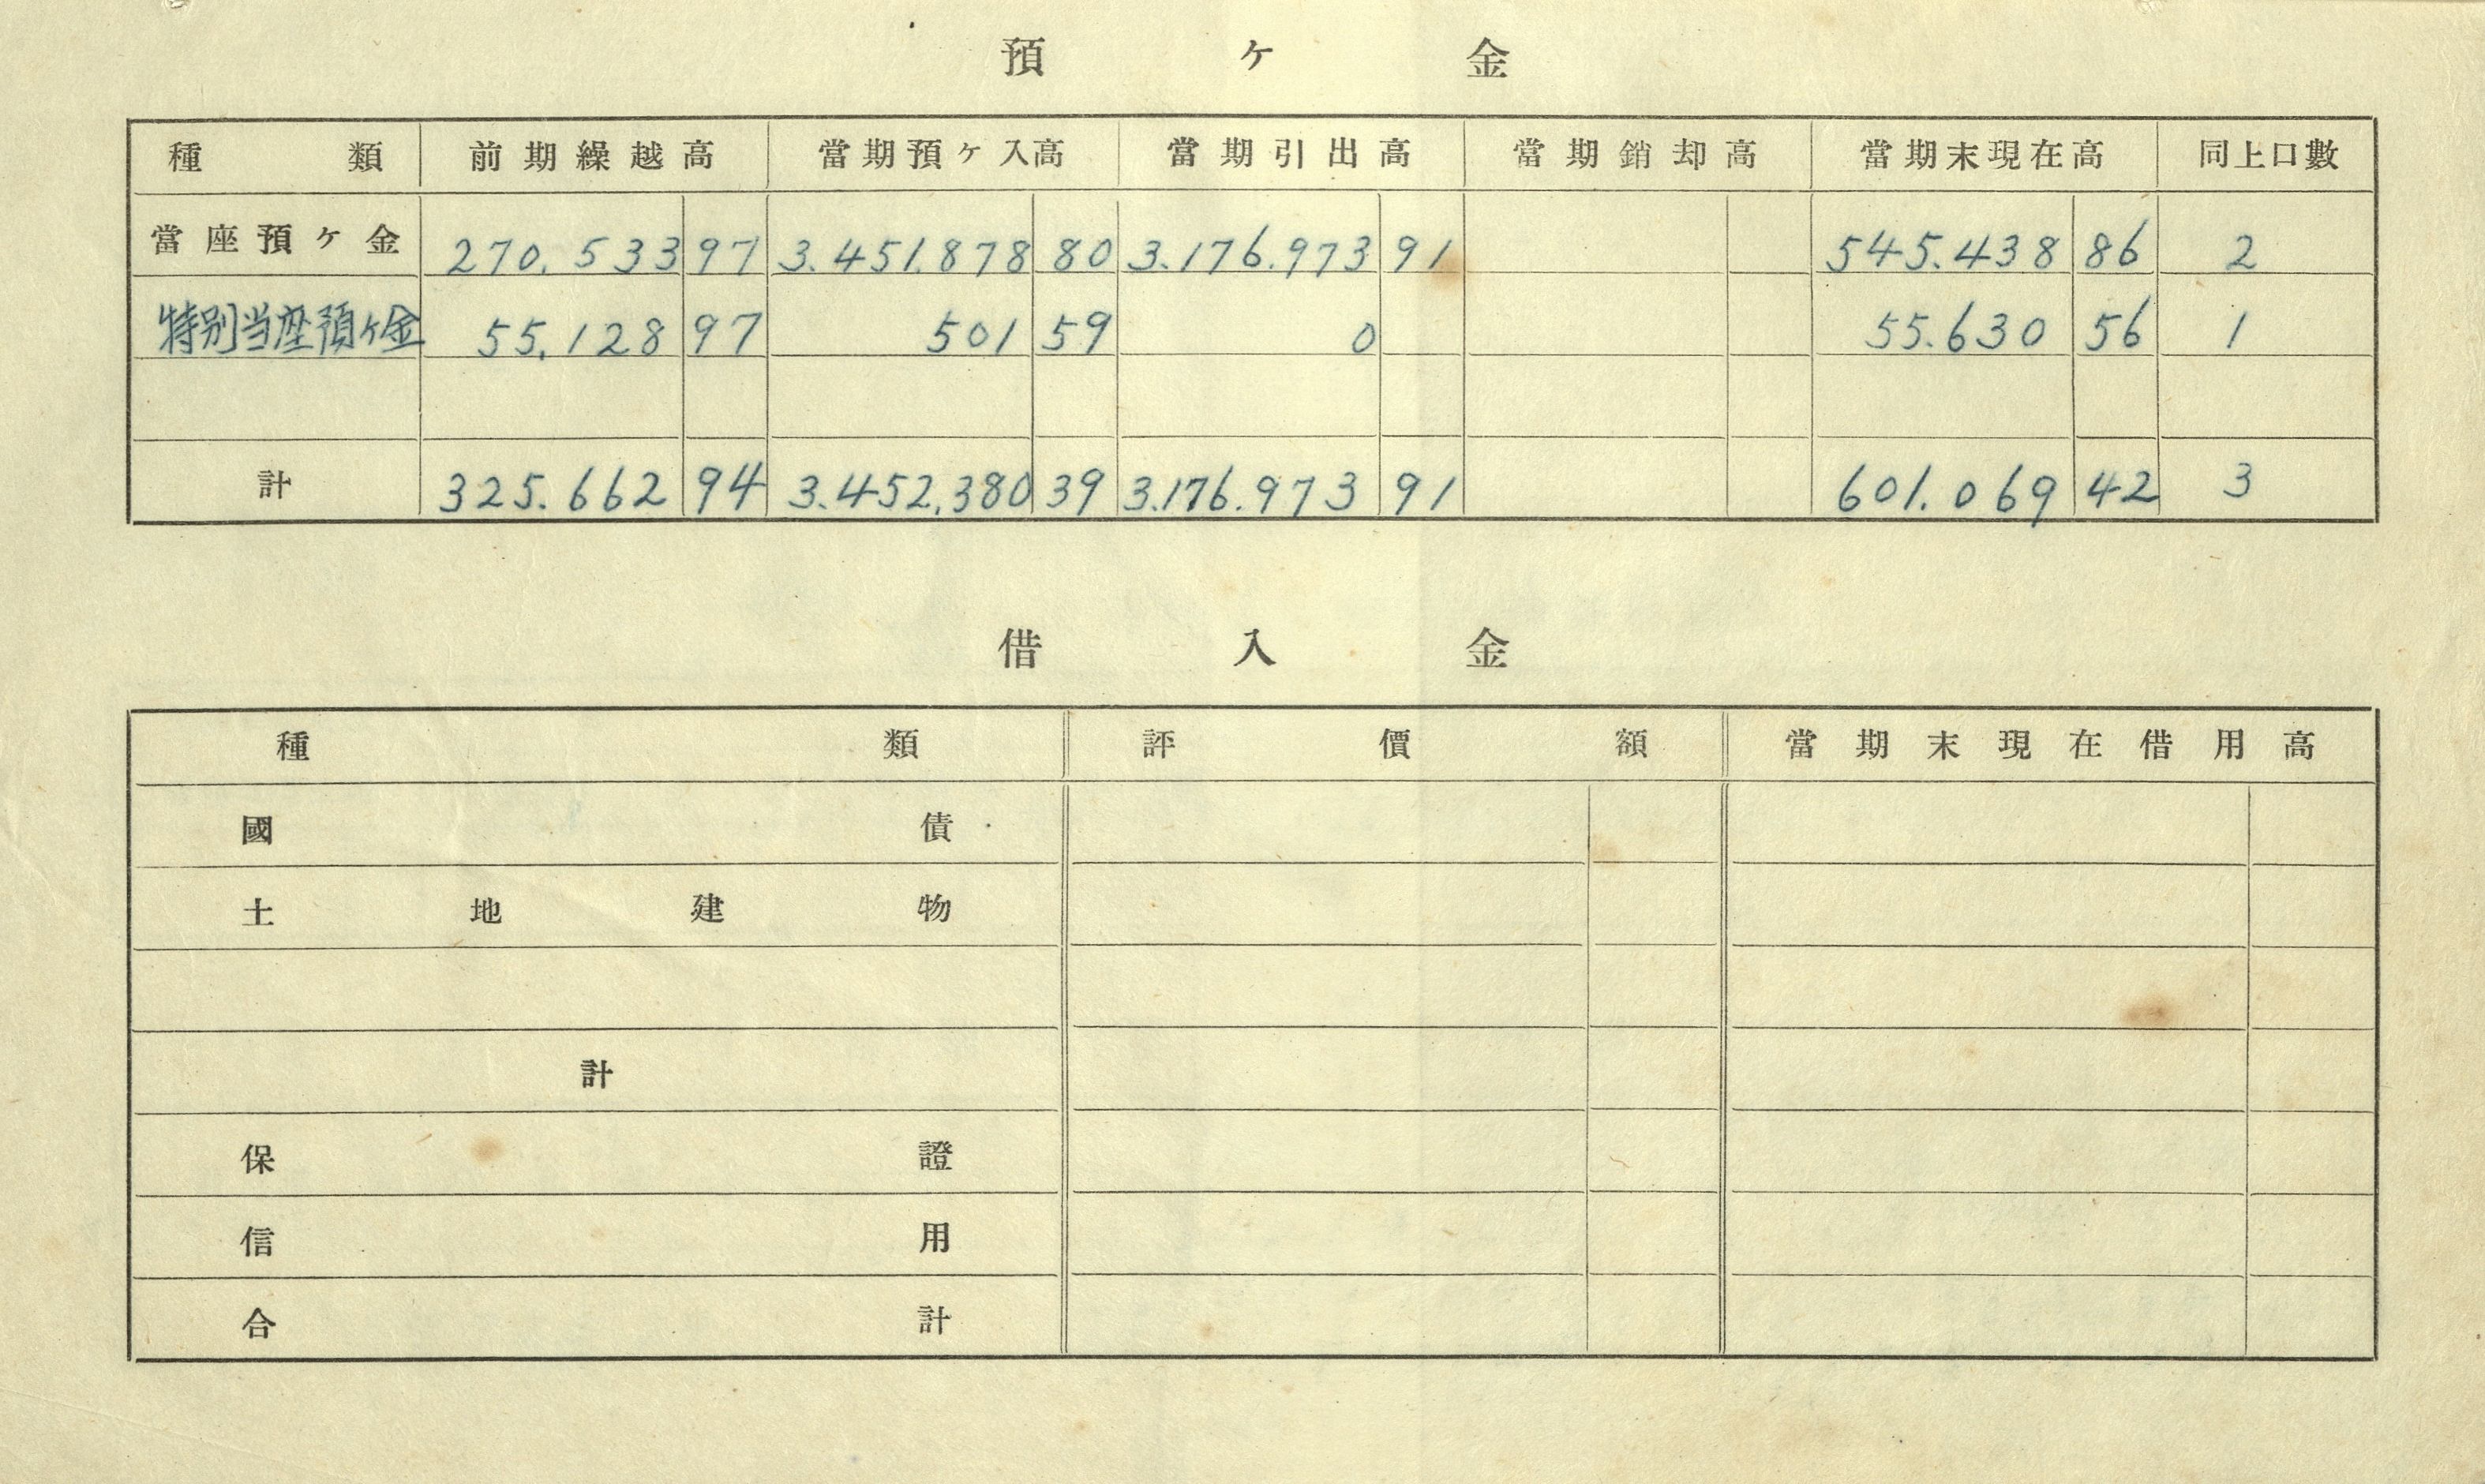 預ケ金
種類 前期繰越高 當期預ケ入高 當期引出高 當期銷却高 當期末現在高 同上口數
當座預ケ金 270.533 97 3.451.878 80 3.176.973 91 545.438 86 2
特別当座預ケ金 55.128 97 501 59 0 55.630 56 1
計 325.662 94 3.452.380 39 3.176.973 91 601.069 42 3
借入金
種類 評價額 當期末現在借用高
國債
土地建物
計
保證
信用
合計